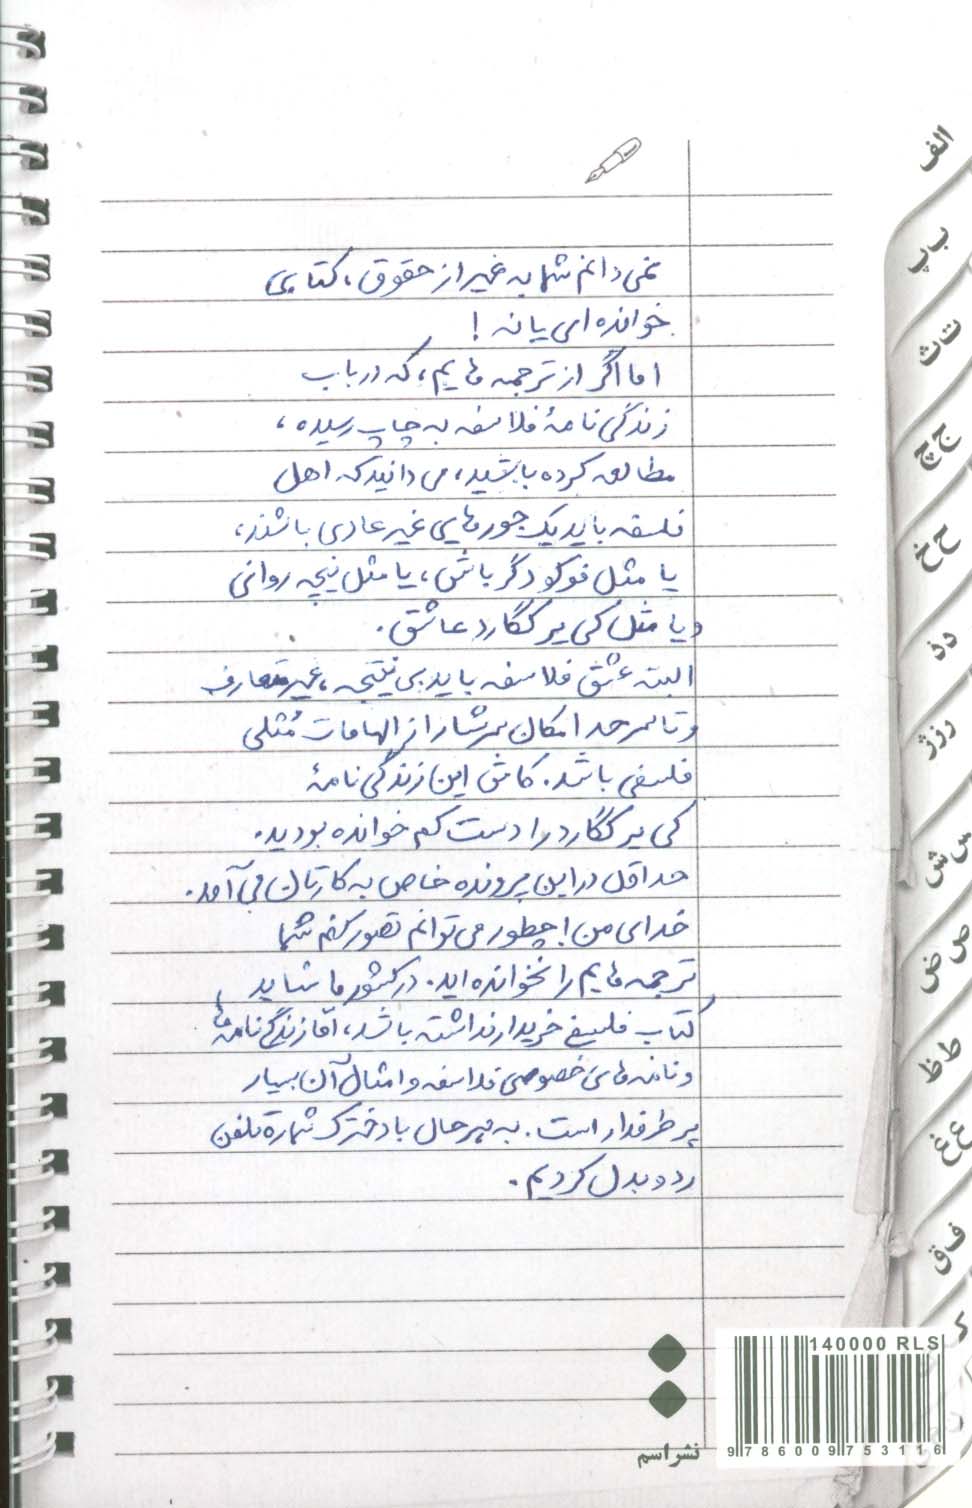 نمی دانم شما به غیر از حقوق، کتابی
خوانده ای یا نه !
اما اگر از ترجمه هایم، که در باب
زندگی نامهٔ فلاسفه به چاپ رسیده،
مطالعه کرده باشید، می دانید که اهل
فلسفه باید یک جورهایی غیر عادی باشند،
یا مثل فوکو دگرباش، یا مثل نیچه روانی
و یا مثل کی یرکگارد عاشق.
البته عشق فلاسفه باید بی نتیجه، غیر متعارف
و تا سر حد امکان سرشار از الهامات مُثلی
فلسفی باشد. کاش این زندگی نامهٔ
کی یرکگارد را دست کم خوانده بودید.
حداقل در این پرونده خاص به کارتان می آمد.
خدای من! چطور می توانم تصور کنم شما
ترجمه هایم را نخوانده اید. در کشور ما شاید
کتاب فلسفی خریدار نداشته باشد، امّا زندگی نامه ها،
و نامه های خصوصی فلاسفه و امثال آن بسیار
پر طرفدار است. به هر حال با دخترک شمارهٔ تلفن
رد و بدل کردیم.
الف
ب پ
ت ث
ج چ
ح خ
د ذ
ر ز ژ
س ش
ص ض
ط ظ
ع غ
ف ق
140000 RLS
9786009753116
نشر اسم